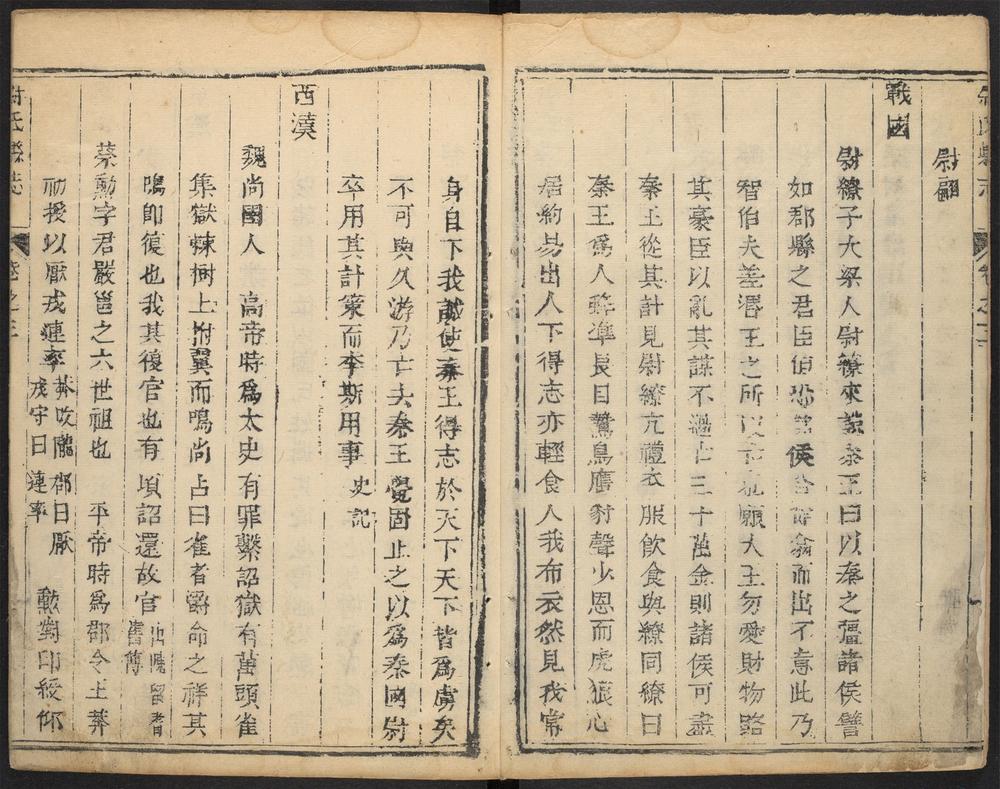 尉翩
戰國
尉繚子大梁人尉繚來說秦王曰以秦之彊諸侯譬
如郡縣之君臣但恐諸侯合從翕而出不意此乃
智伯夫差湣王之所以亡也願大王勿愛財物賂
其豪臣以亂其謀不過亡三十萬金則諸侯可盡
秦王從其計見尉繚亢禮衣服飲食與繚同繚曰
秦王爲人蜂準長目鷙鳥膺豺聲少恩而虎狼心
居約易出人下得志亦輕食人我布衣然見我常
身自下我誠使秦王得志於天下天下皆爲虜矣
不可與久游乃亡去秦王覺固止之以爲秦國尉
卒用其計策而李斯用事 史記
西漢
魏尚圉人 高帝時爲太史有罪繫詔獄有萬頭雀
集獄棘樹上拊翼而鳴尚占曰雀者爵命之祥其
鳴即復也我其復官也有頃詔還故官 留耆
舊傳
蔡勳字君嚴邕之六世祖也 平帝時爲郿令王莽
初授以厭戎連率 莽改隴郡曰厭
戎守曰連率 勳對印綬仰
尉氏縣志 卷之三